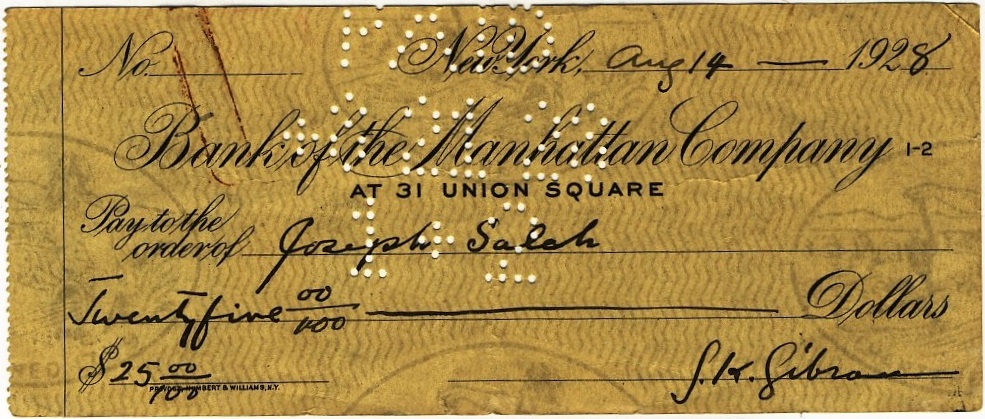 No. New York, Aug 14 — 1928
Bank of the Manhattan Company 1-2
AT 31 UNION SQUARE
Pay to the
order of Joseph Saleh
Twenty five 00/100 Dollars
$ 25 00/100
PROVOST, HUMBERT & WILLIAMS, N.Y.
G. K. Gibran